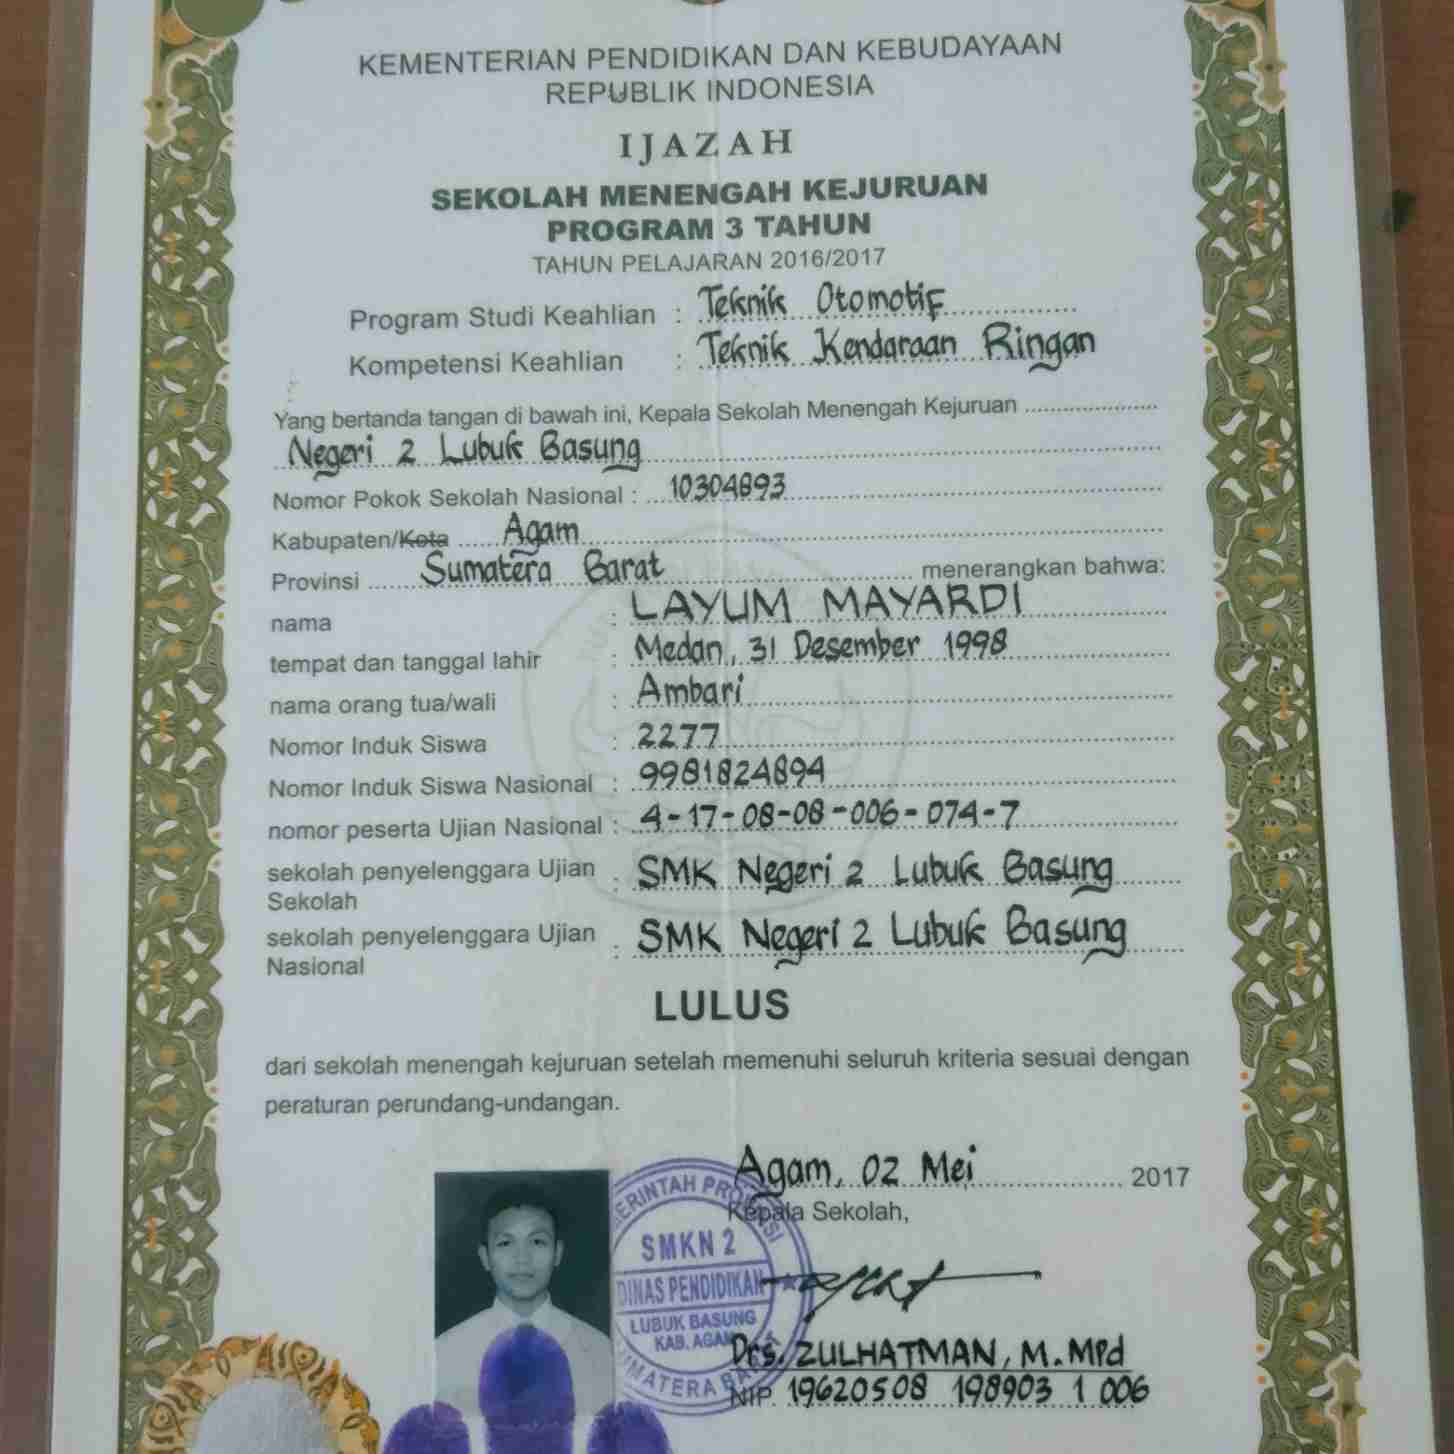 KEMENTERIAN PENDIDIKAN DAN KEBUDAYAAN
REPUBLIK INDONESIA
IJAZAH
SEKOLAH MENENGAH KEJURUAN
PROGRAM 3 TAHUN
TAHUN PELAJARAN 2016/2017
Program Studi Keahlian : Teknik Otomotif
Kompetensi Keahlian : Teknik Kendaraan Ringan
Yang bertanda tangan di bawah ini, Kepala Sekolah Menengah Kejuruan
Negeri 2 Lubuk Basung
Nomor Pokok Sekolah Nasional : 10304893
Kabupaten/Kota Agam
Provinsi Sumatera Barat menerangkan bahwa:
nama : LAYUM MAYARDI
tempat dan tanggal lahir : Medan, 31 Desember 1998
nama orang tua/wali : Ambari
Nomor Induk Siswa : 2277
Nomor Induk Siswa Nasional : 9981824894
nomor peserta Ujian Nasional : 4-17-08-08-006-074-7
sekolah penyelenggara Ujian Sekolah : SMK Negeri 2 Lubuk Basung
sekolah penyelenggara Ujian Nasional : SMK Negeri 2 Lubuk Basung
LULUS
dari sekolah menengah kejuruan setelah memenuhi seluruh kriteria sesuai dengan
peraturan perundang-undangan.
Agam, 02 Mei 2017
Kepala Sekolah,
SMKN 2
DINAS PENDIDIKAN
LUBUK BASUNG
KAB. AGAM
Drs. ZULHATMAN, M.MPd
NIP. 19620508 198903 1 006